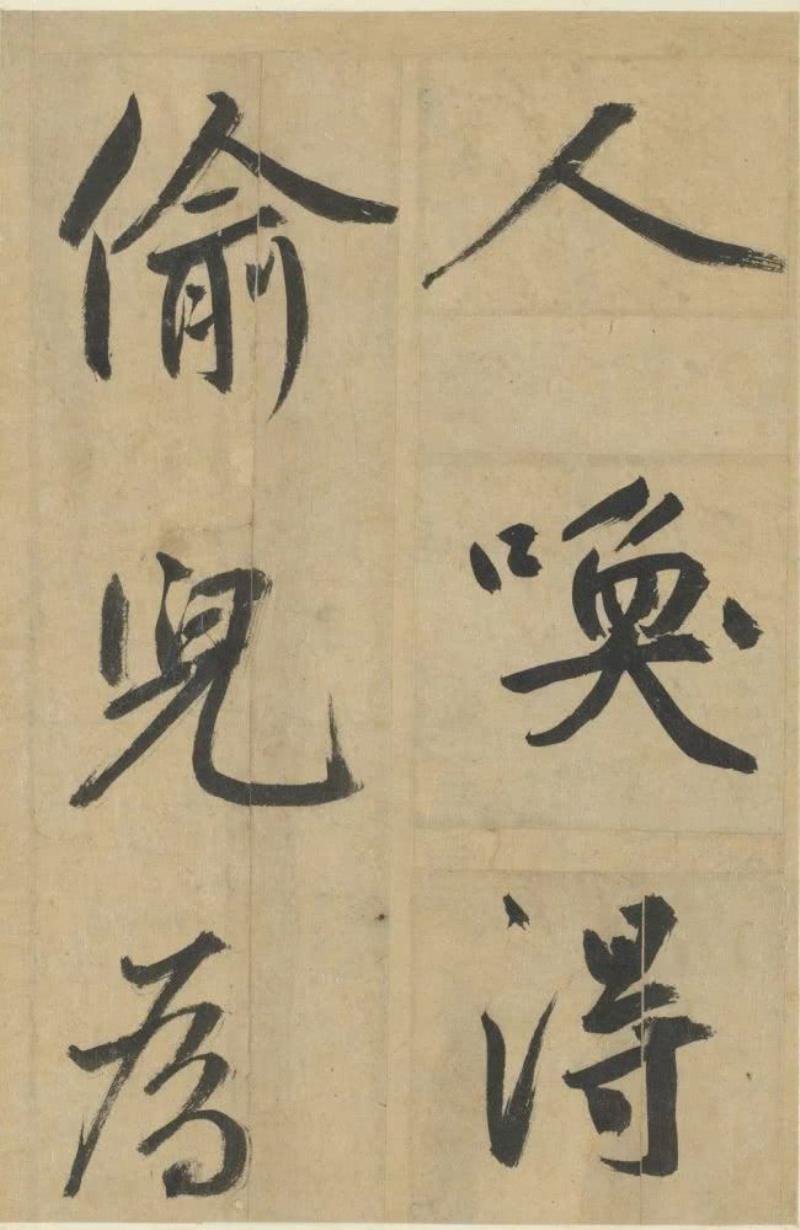 人喚得
偷兒為